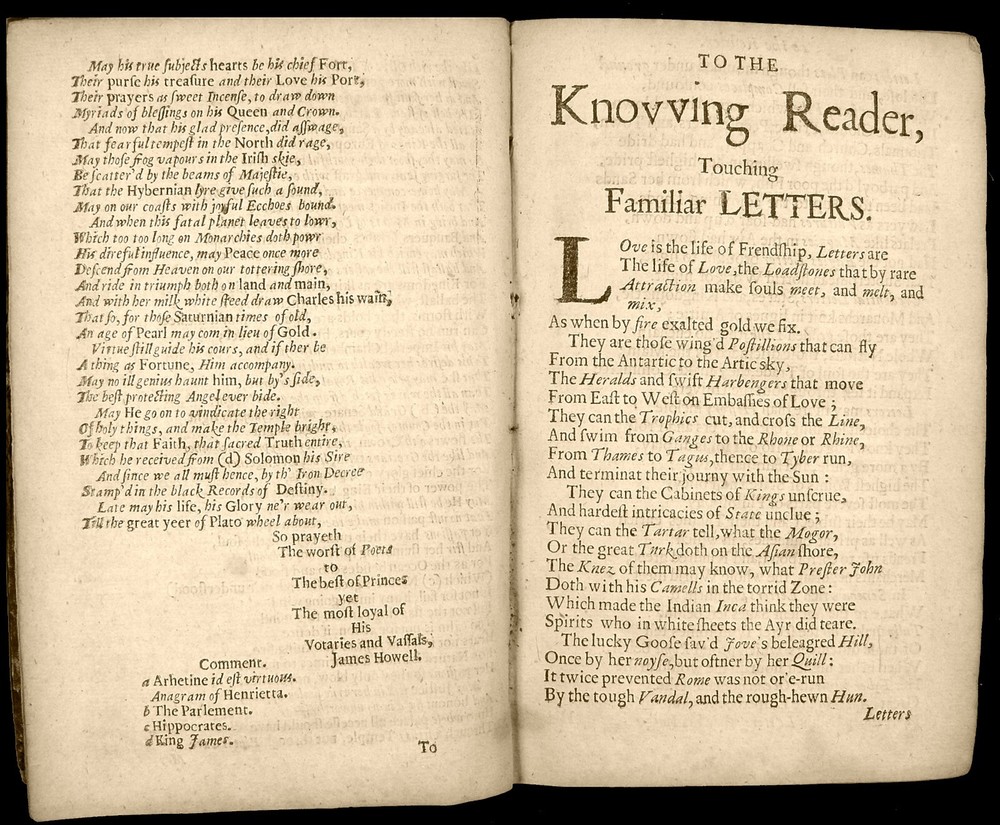 May his true ſubjects hearts be his chief Fort,
Their purſe his treaſure and their Love his Port,
Their prayers as ſweet Incenſe, to draw down
Myriads of bleſſings on his Queen and Crown.
And now that his glad preſence, did aſſwage,
That fearful tempeſt in the North did rage,
May thoſe frog vapours in the Iriſh skie,
Be ſcatter'd by the beams of Majeſtie,
That the Hybernian lyre give ſuch a ſound,
May on our coaſts with joyful Ecchoes bound.
And when this fatal planet leaves to lowr,
Which too too long on Monarchies doth powr
His direful influence, may Peace once more
Deſcend from Heaven on our tottering ſhore,
And ride in triumph both on land and main,
And with her milk white ſteed draw Charles his wain,
That ſo, for thoſe Saturnian times of old,
An age of Pearl may com in lieu of Gold.
Virtue ſtill guide his cours, and if ther be
A thing as Fortune, Him accompany.
May no ill genius haunt him, but by's ſide,
The beſt protecting Angel ever bide.
May He go on to vindicate the right
Of holy things, and make the Temple bright,
To keep that Faith, that ſacred Truth entire,
Which he received from (d) Solomon his Sire
And ſince we all muſt hence, by th' Iron Decree
Stamp'd in the black Records of Deſtiny.
Late may his life, his Glory ne'r wear out,
Till the great yeer of Plato wheel about,
So prayeth
The worſt of Poets
to
The beſt of Princes
yet
The moſt loyal of
His
Votaries and Vaſſals,
James Howell.
Comment.
a Arhetine id eſt virtuous.
Anagram of Henrietta.
b The Parlement.
c Hippocrates.
d King James.
To
TO THE
Knovving Reader,
Touching
Familiar LETTERS.
LOve is the life of Frendſhip, Letters are
The life of Love, the Loadſtones that by rare
Attraction make ſouls meet, and melt, and
mix,
As when by fire exalted gold we fix.
They are thoſe wing'd Poſtillions that can fly
From the Antartic to the Artic sky,
The Heralds and ſwift Harbengers that move
From Eaſt to Weſt on Embaſſies of Love;
They can the Trophics cut, and croſs the Line,
And ſwim from Ganges to the Rhone or Rhine,
From Thames to Tagus, thence to Tyber run,
And terminat their journy with the Sun:
They can the Cabinets of Kings unſcrue,
And hardeſt intricacies of State unclue;
They can the Tartar tell, what the Mogor,
Or the great Turk doth on the Aſian ſhore,
The Knez of them may know, what Preſter John
Doth with his Camells in the torrid Zone:
Which made the Indian Inca think they were
Spirits who in white ſheets the Ayr did teare.
The lucky Gooſe ſav'd Jove's beleagred Hill,
Once by her noyſe, but oftner by her Quill:
It twice prevented Rome was not or'e-run
By the tough Vandal, and the rough-hewn Hun.
Letters